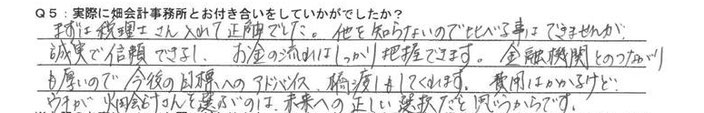 Q5：実際に畑会計事務所とお付き合いをしていかがでしたか？
まずは税理士さん入れて正解でした。他を知らないので比べる事はできませんが、
誠実で信頼できるし、お金の流れはしっかり把握できます。金融機関とのつながり
も厚いので今後の目標へのアドバイス、橋渡しもしてくれます。費用はかかるけど、
ウチが畑会計さんを選ぶのは、未来への正しい選択だと思うからです。